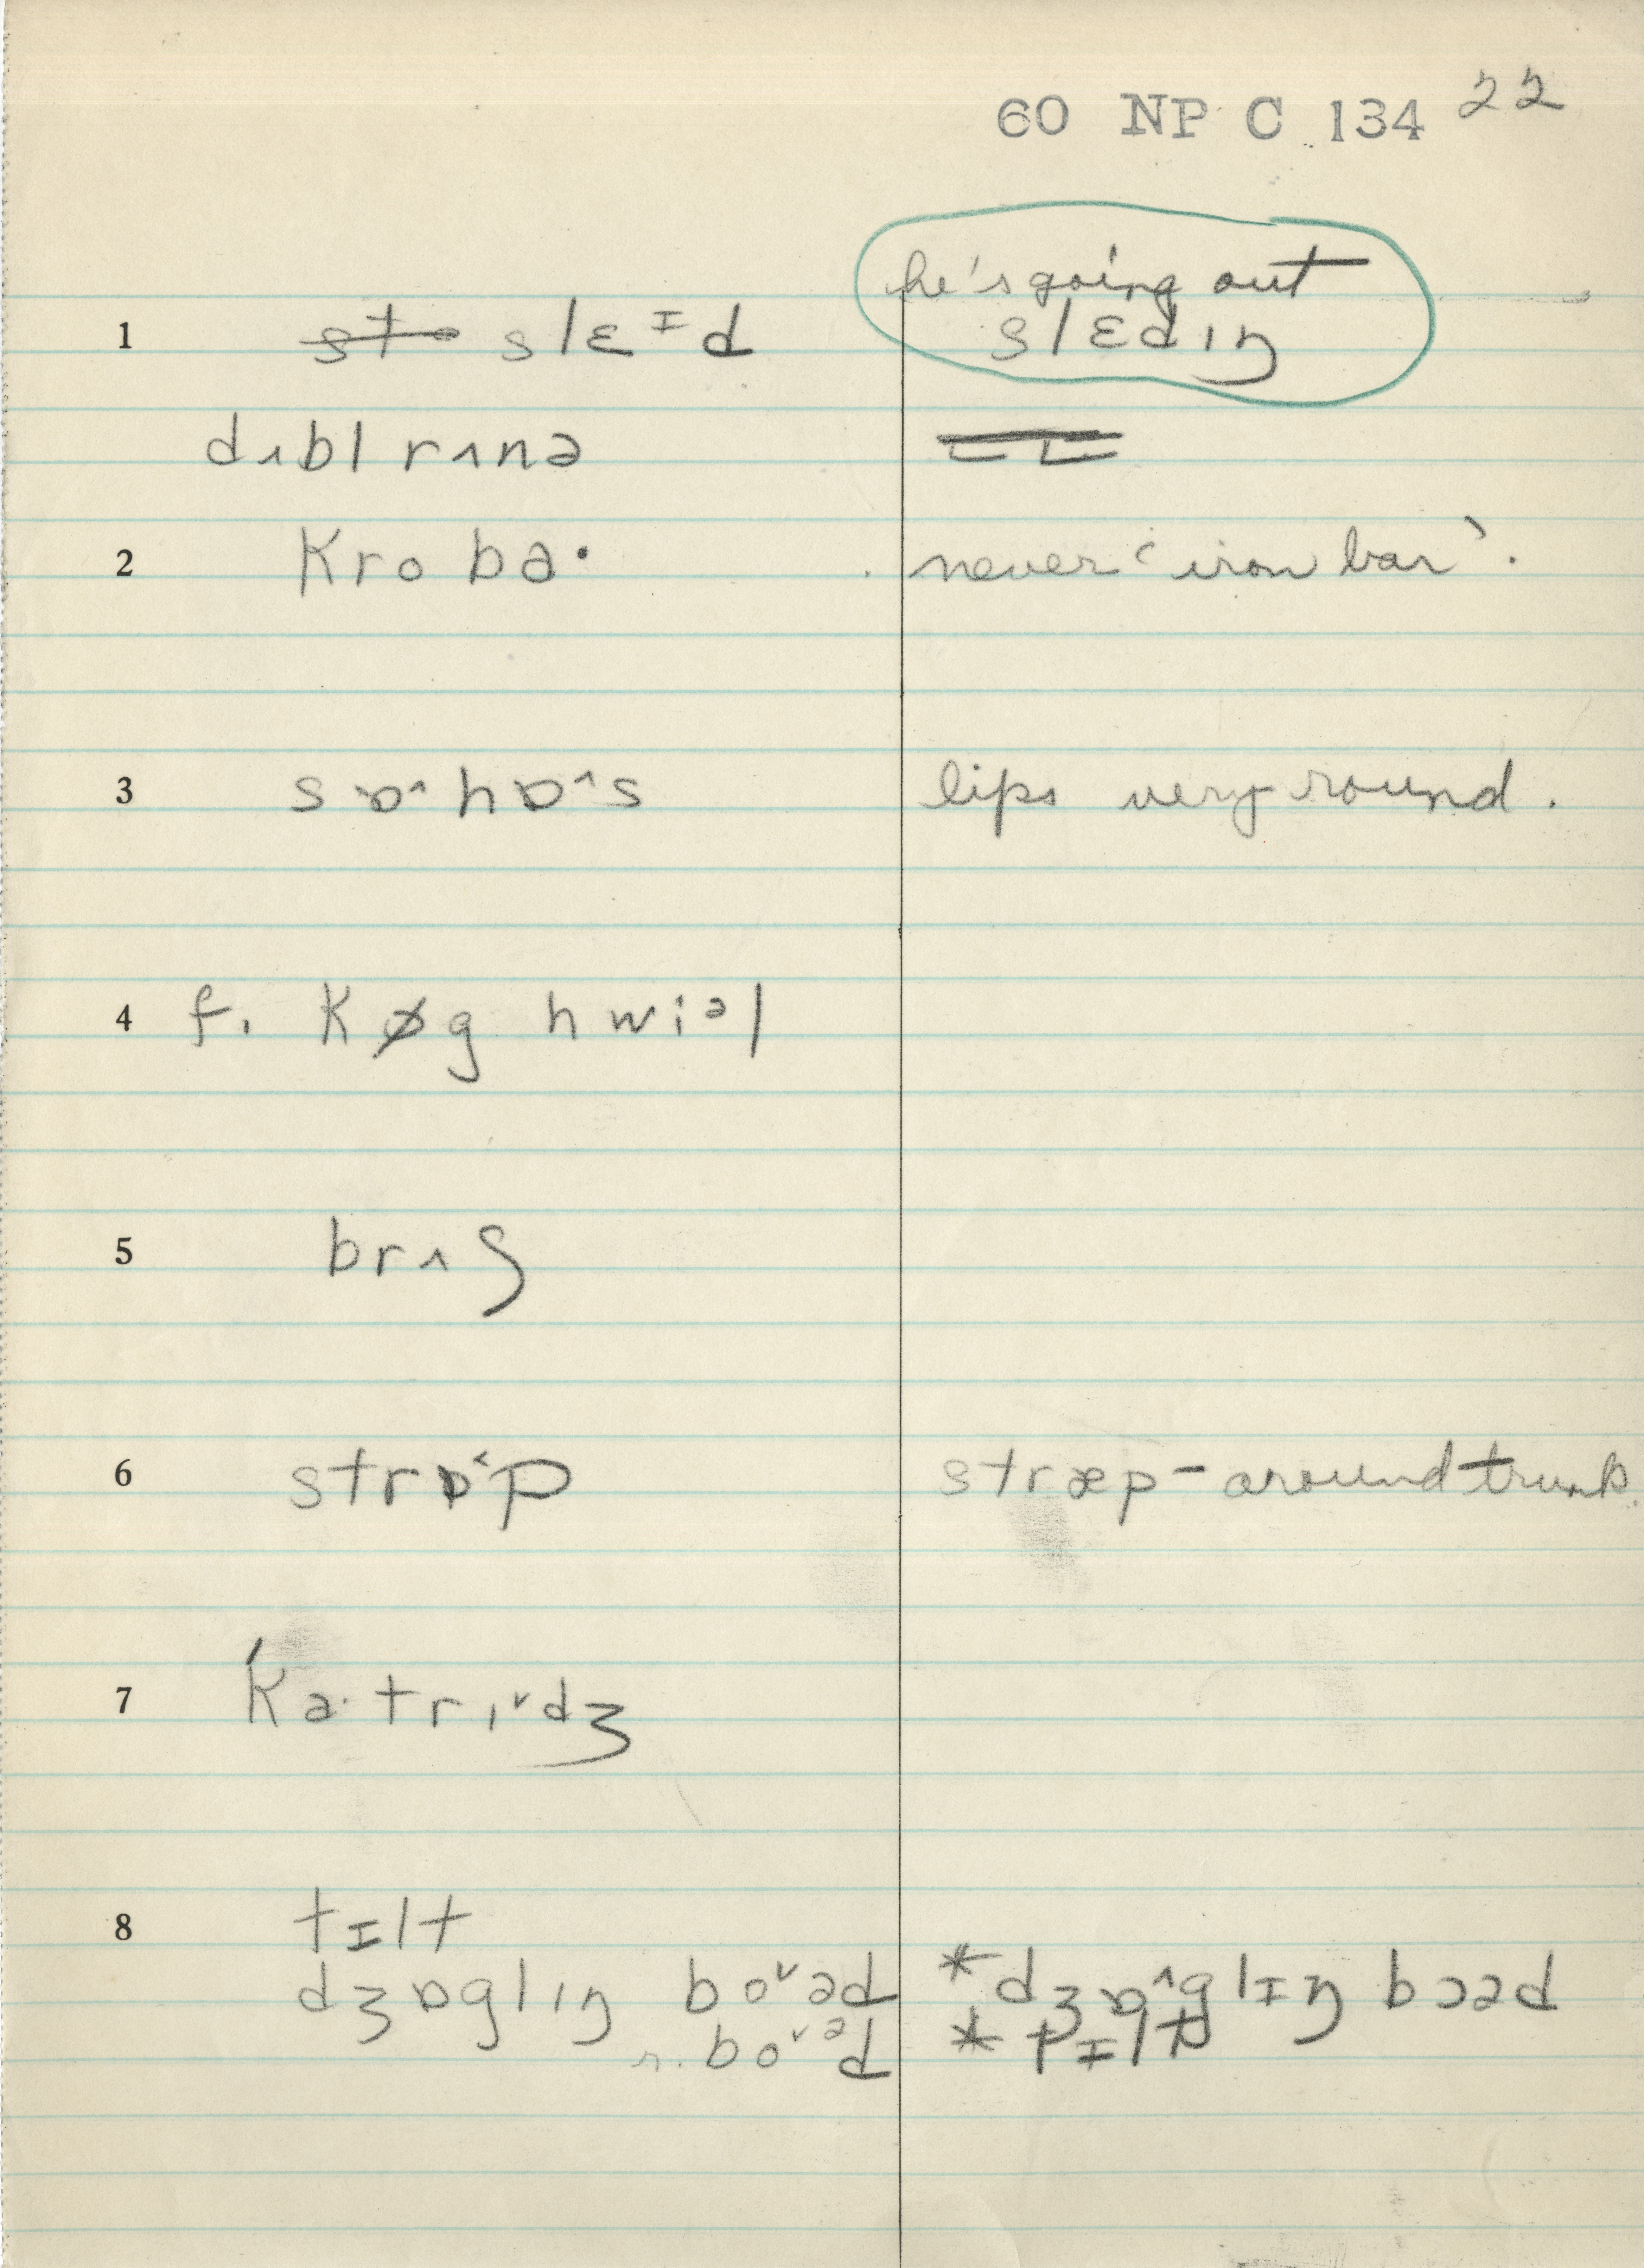 60 NP C 134 22
he's going out
1 slɛᶦd slɛdɪŋ
dʌbl rʌnə
2 kro ba· never ‘iron bar’.
3 sɒ^hɒ^s lips very round.
4 f. kɒg hwiᵊl
5 brʌʃ
6 strɒ˂p stræp - around trunk.
7 ˈka·trɪ˅dʒ
8 tɪlt
dʒɒglɪŋ bo˅əd *dʒɒ^glɪŋ bɔəd
r. bo˅ᵊd * tɪlt